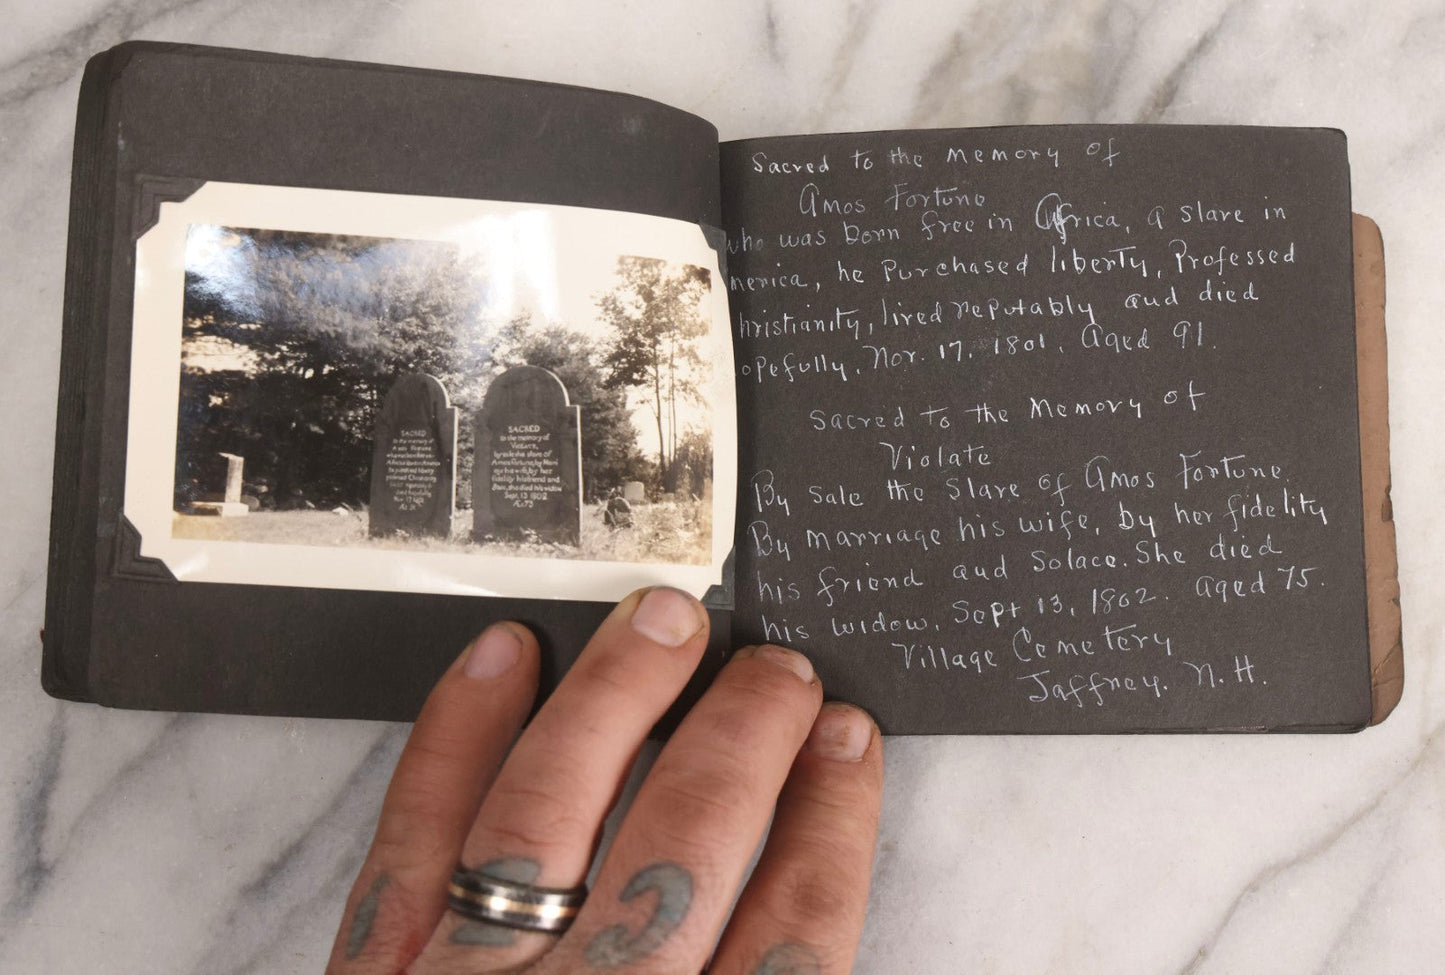 SACRED
to the memory of
Amos Fortune
Nov 17 1801
SACRED
to the memory of
Violate,
by sale the slave of
Amos Fortune, by Marri
age his wife, by her
fidelity his friend and
she died his widow
Sept. 13 1802
Æt. 73
Sacred to the Memory of
Amos Fortune
who was born free in Africa, a slave in
merica, he Purchased liberty, Professed
hristianity, lived reputably and died
opefully, Nov. 17, 1801, Aged 91.
Sacred to the Memory of
Violate
By sale the slave of Amos Fortune.
By marriage his wife, by her fidelity
his friend and solace. She died
his widow, Sept 13, 1802. aged 75.
Village Cemetery
Jaffrey. N. H.